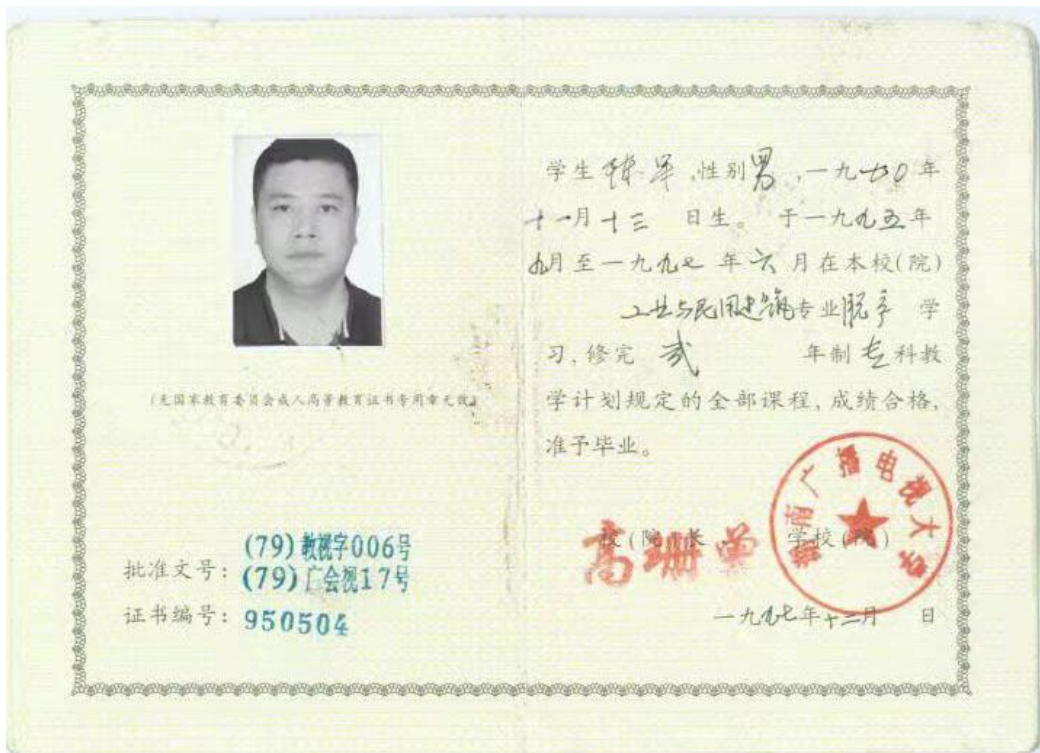 (无国家教育委员会成人高等教育证书专用章无效)
批准文号:
(79)教视字006号
(79)广会视17号
证书编号: 950504
学生 性别男,一九七〇年
十一月十三 日生。 于一九九五年
九月至一九九七 年六 月在本校(院)
工业与民用建筑专业脱产 学
习,修完 贰 年制专科教
学计划规定的全部课程,成绩合格,
准予毕业。
校(院)长 学校(院)
高珊
南广播电视大学
一九九七年十二月 日